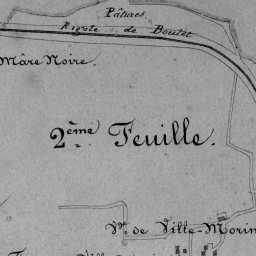 Pâtures
Rigole de Boutet
Mâre Noire.
2ème Feuille.
Vge de Ville-Morin